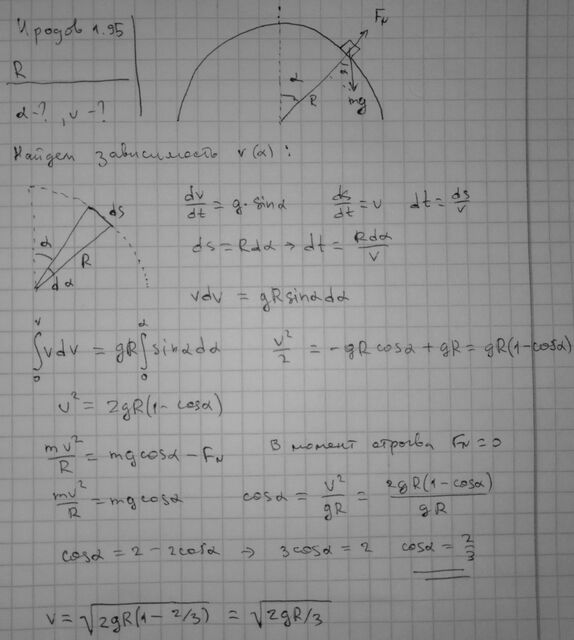 Иродов 1.95
R
α-?, v-?
F_N
α
R
α
mg
Найдем зависимость v(α):
ds
α
R
dα
dv/dt = g·sinα    ds/dt = v    dt = ds/v
ds = Rdα → dt = Rdα/v
vdv = gRsinαdα
∫₀ᵛ vdv = gR ∫₀^α sinαdα    v²/2 = -gRcosα + gR = gR(1-cosα)
v² = 2gR(1-cosα)
mv²/R = mgcosα - F_N    В момент отрыва F_N = 0
mv²/R = mgcosα    cosα = v²/gR = 2gR(1-cosα)/gR
cosα = 2 - 2cosα → 3cosα = 2    cosα = 2/3
v = √(2gR(1-2/3)) = √(2gR/3)